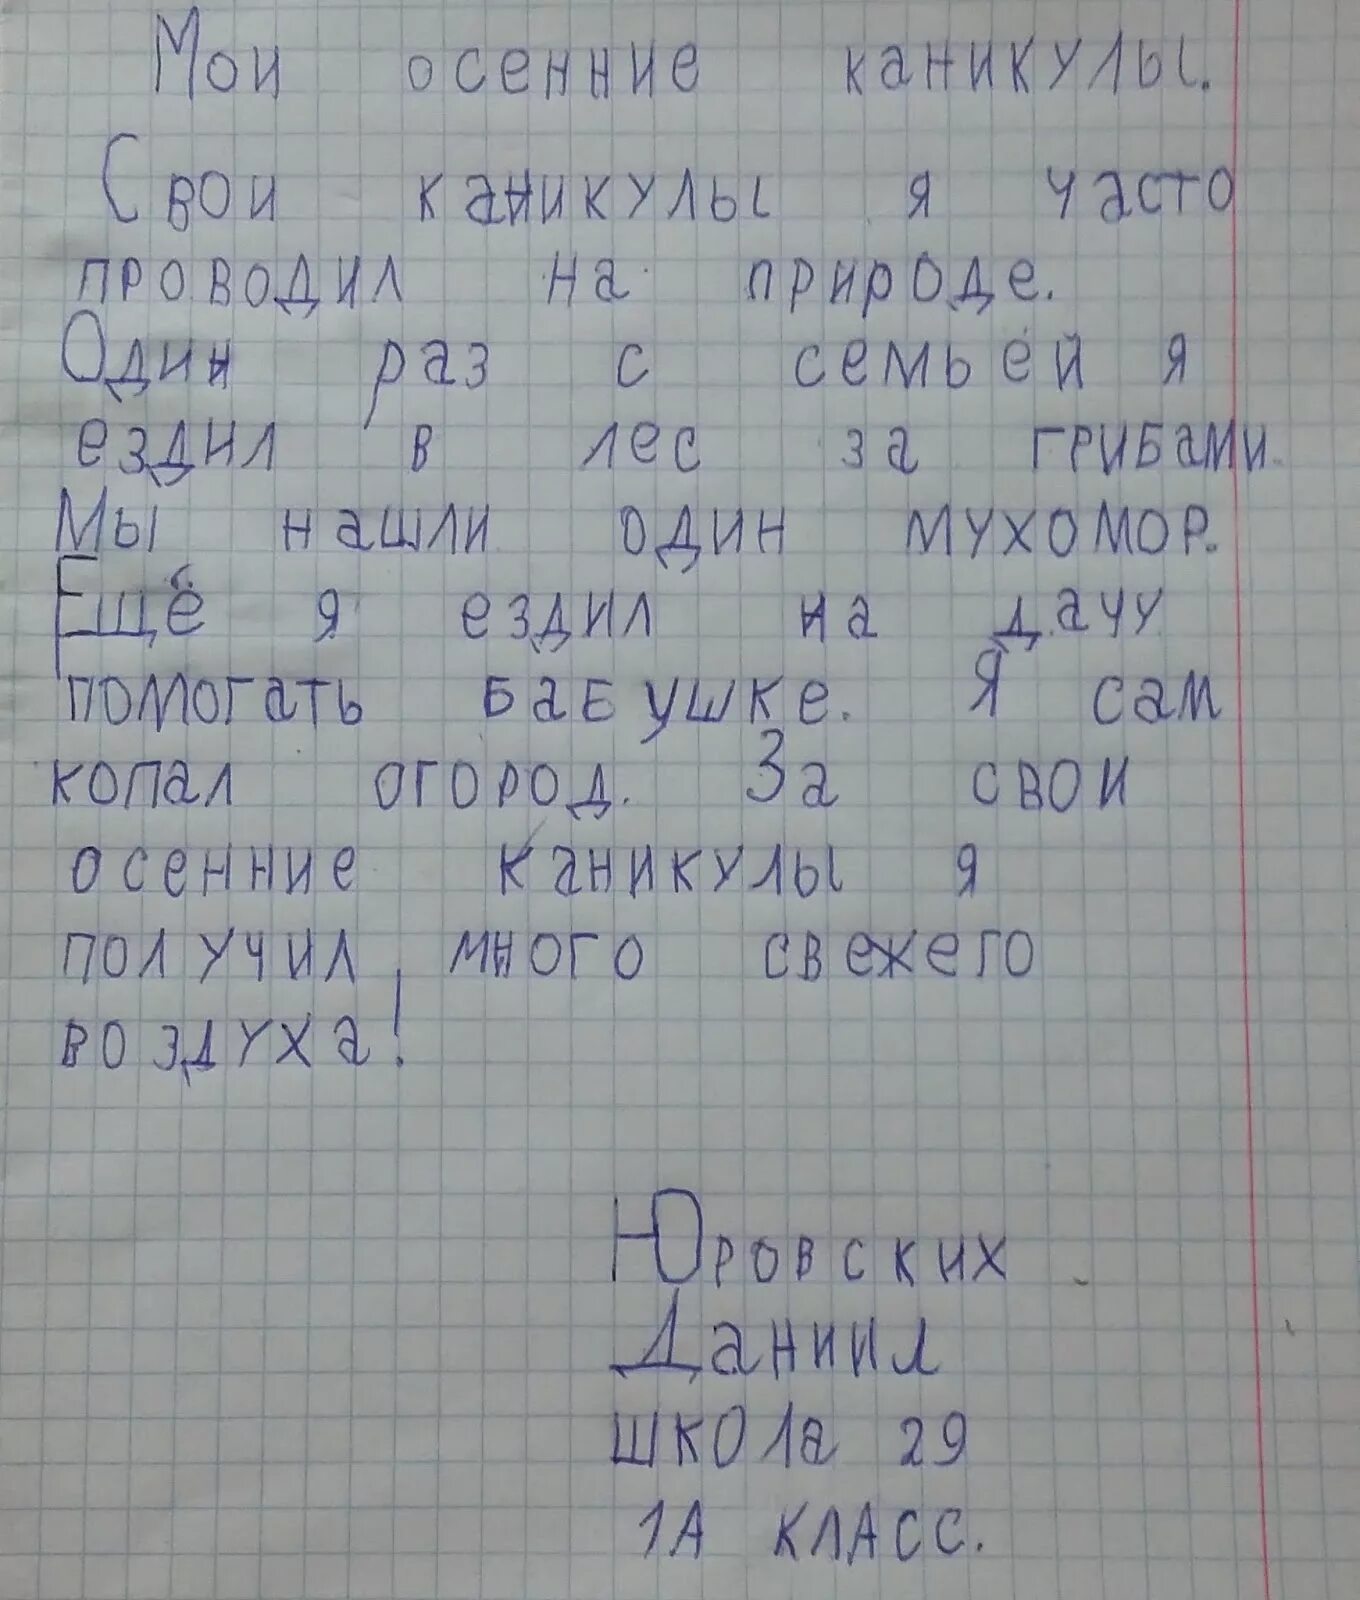 Мои осенние каникулы.
Свои каникулы я часто
проводил на природе.
Один раз с семьей я
ездил в лес за грибами.
Мы нашли один мухомор.
Ещё я ездил на дачу
помогать бабушке. Я сам
копал огород. За свои
осенние каникулы я
получил много свежего
воздуха!
Юровских
Даниил
школа 29
1А класс.